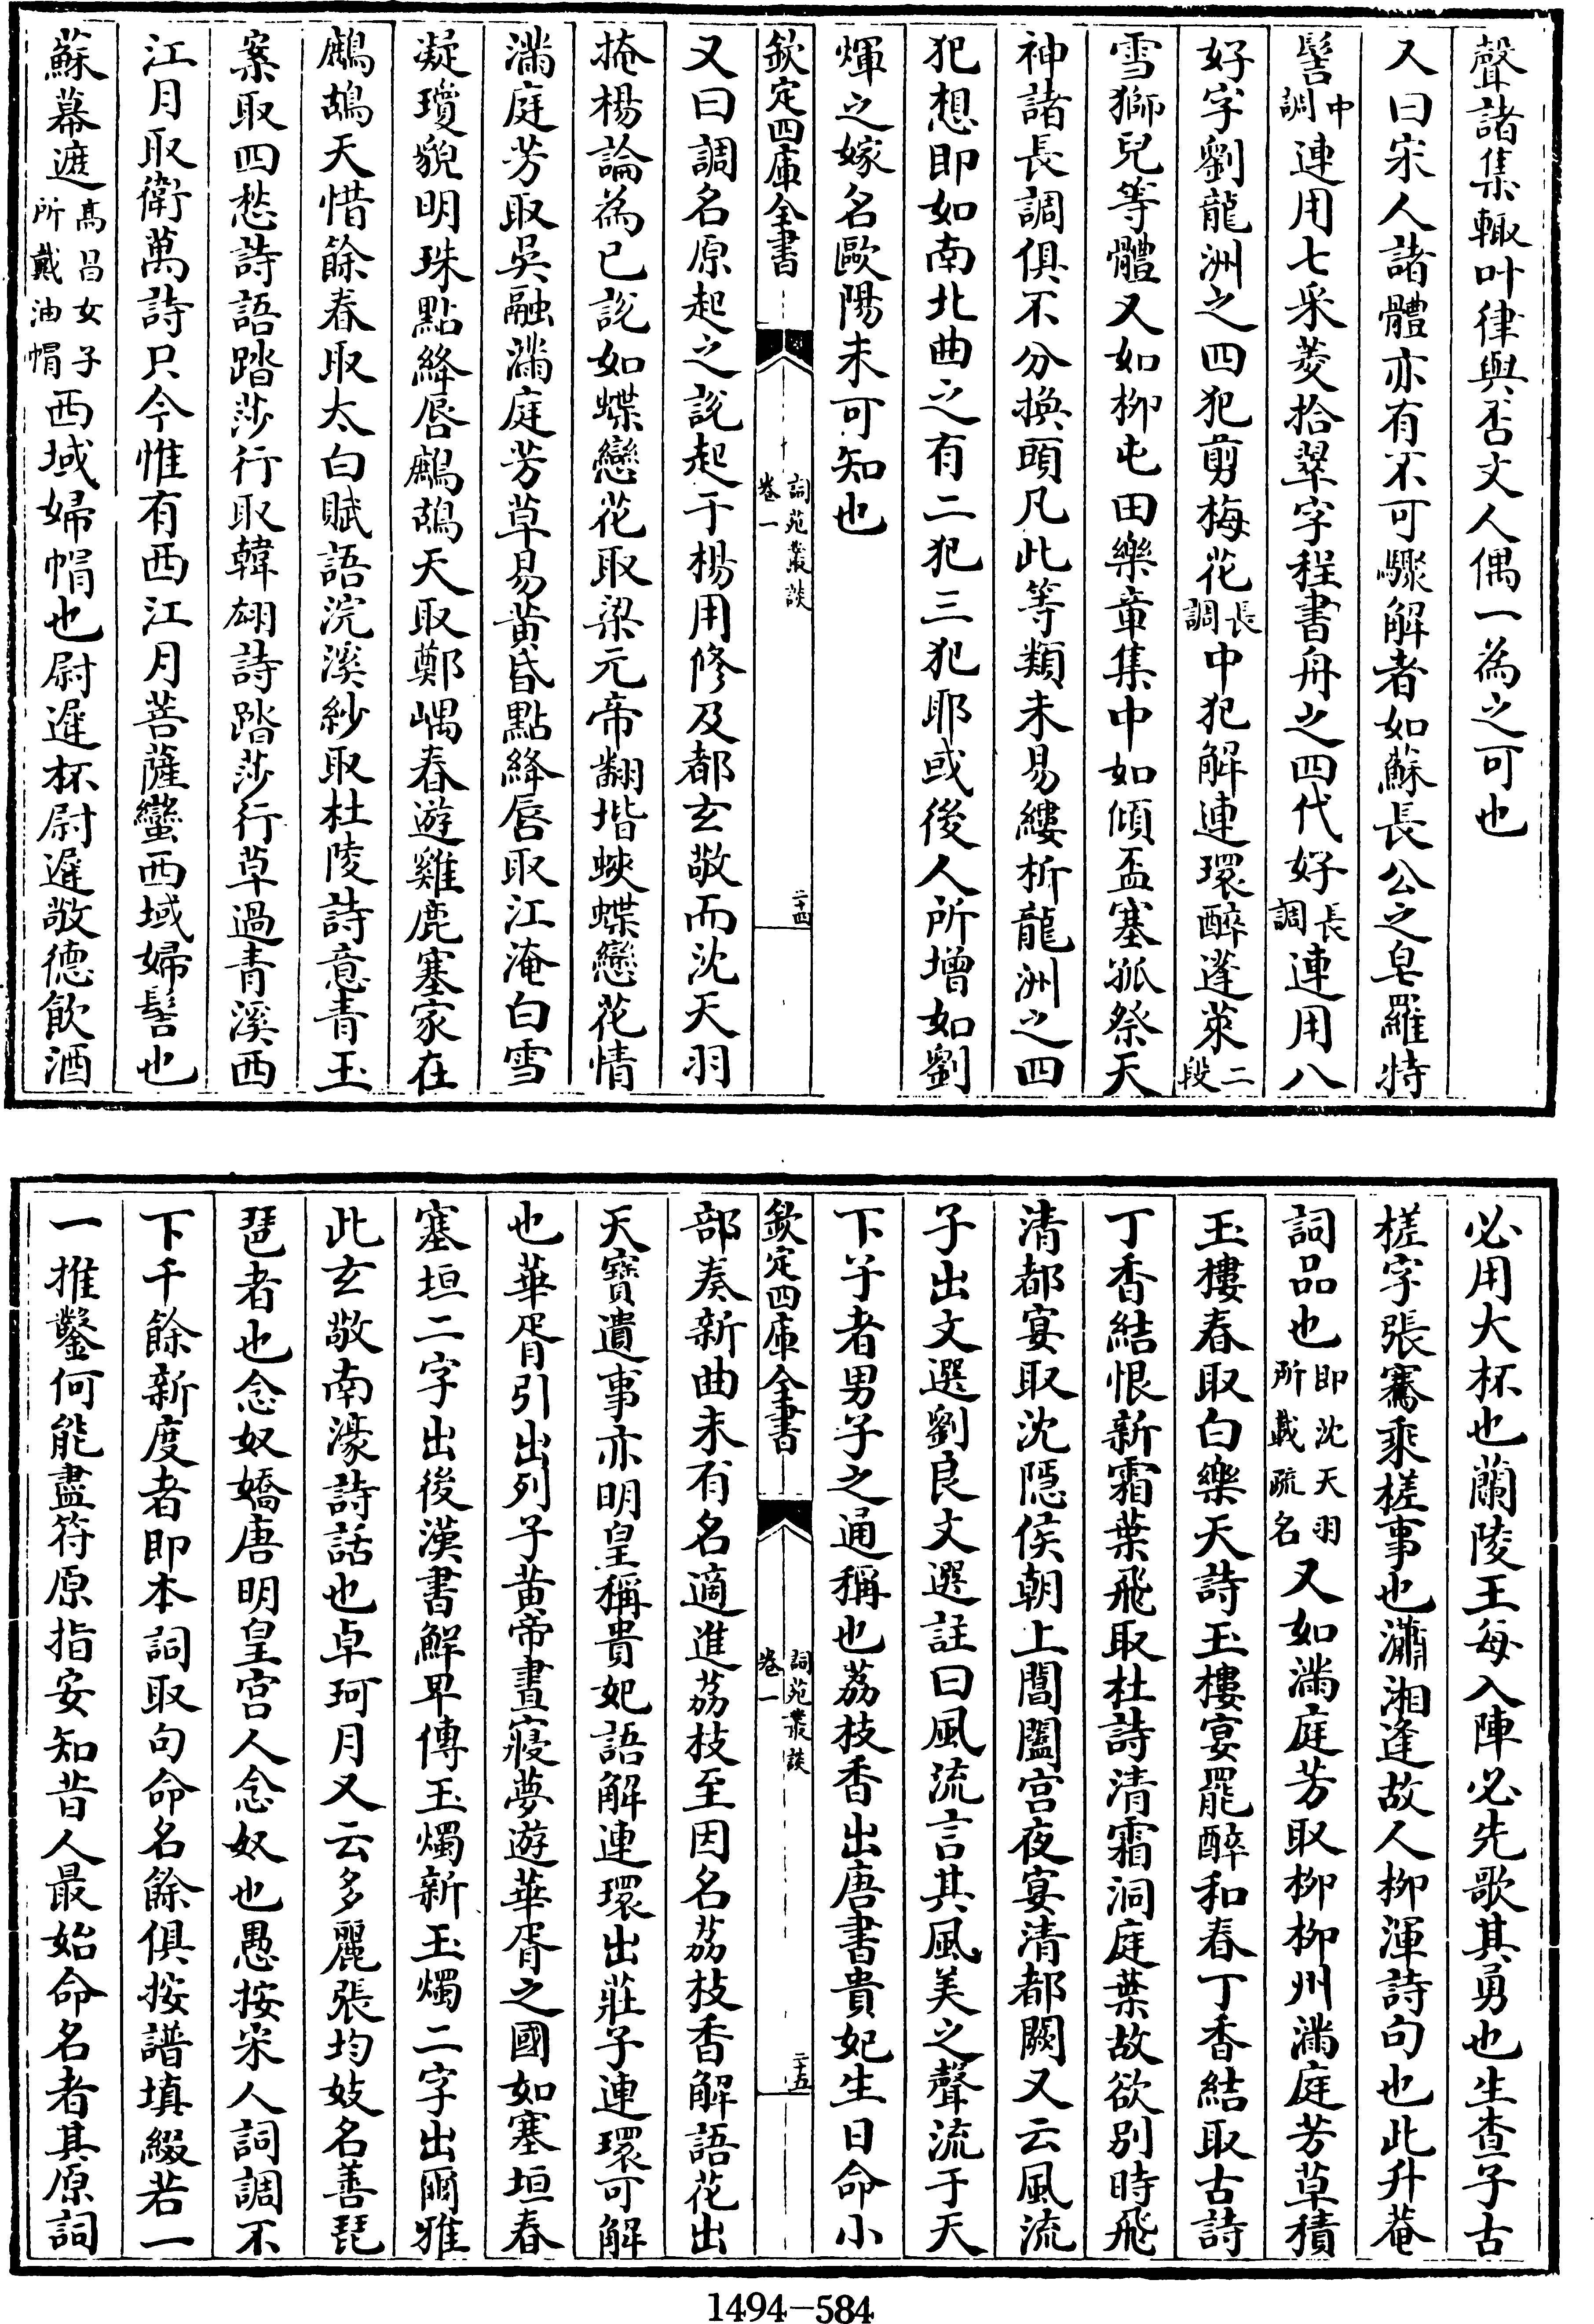 聲諸集輙叶律與否文人偶一為之可也
又曰宋人諸體亦有不可驟解者如蘇長公之皂羅特
髻中調連用七采菱拾翠字程書舟之四代好長調連用八
好字劉龍洲之四犯剪梅花長調中犯解連環醉蓬萊二段
雪獅兒等體又如柳屯田樂章集中如傾盃塞孤祭天
神諸長調俱不分換頭凡此等類未易縷析龍洲之四
犯想即如南北曲之有二犯三犯耶或後人所增如劉
煇之嫁名歐陽未可知也
欽定四庫全書
詞苑叢談
卷一
二十四
又曰調名原起之説起于楊用修及都玄敬而沈天羽
掩楊論為已説如蝶戀花取梁元帝翻堦蛺蝶戀花情
滿庭芳取吳融滿庭芳草易黄昏點絳唇取江淹白雪
凝瓊貌明珠點絳唇鷓鴣天取鄭嵎春遊雞鹿塞家在
鷓鴣天惜餘春取太白賦語浣溪紗取杜陵詩意青玉
案取四愁詩語踏莎行取韓翃詩踏莎行草過青溪西
江月取衛萬詩只今惟有西江月菩薩蠻西域婦髻也
蘇幕遮高昌女子所戴油帽西域婦帽也尉遲杯尉遲敬德飲酒
必用大杯也蘭陵王每入陣必先歌其勇也生查子古
槎字張騫乘槎事也瀟湘逢故人柳渾詩句也此升菴
詞品也即沈天羽所載疏名又如滿庭芳取柳柳州滿庭芳草積
玉樓春取白樂天詩玉樓宴罷醉和春丁香結取古詩
丁香結恨新霜葉飛取杜詩清霜洞庭葉故欲別時飛
清都宴取沈隱侯朝上閶闔宫夜宴清都闕又云風流
子出文選劉良文選註曰風流言其風美之聲流于天
下子者男子之通稱也荔枝香出唐書貴妃生日命小
欽定四庫全書
詞苑叢談
卷一
二十五
部奏新曲未有名適進荔枝至因名荔枝香解語花出
天寶遺事亦明皇稱貴妃語解連環出莊子連環可解
也華胥引出列子黄帝晝寢夢遊華胥之國如塞垣春
塞垣二字出後漢書鮮卑傳玉燭新玉燭二字出爾雅
此玄敬南濠詩話也卓珂月又云多麗張均妓名善琵
琶者也念奴嬌唐明皇宫人念奴也愚按宋人詞調不
下千餘新度者即本詞取句命名餘俱按譜填綴若一
一推鑿何能盡符原指安知昔人最始命名者其原詞
1494-584